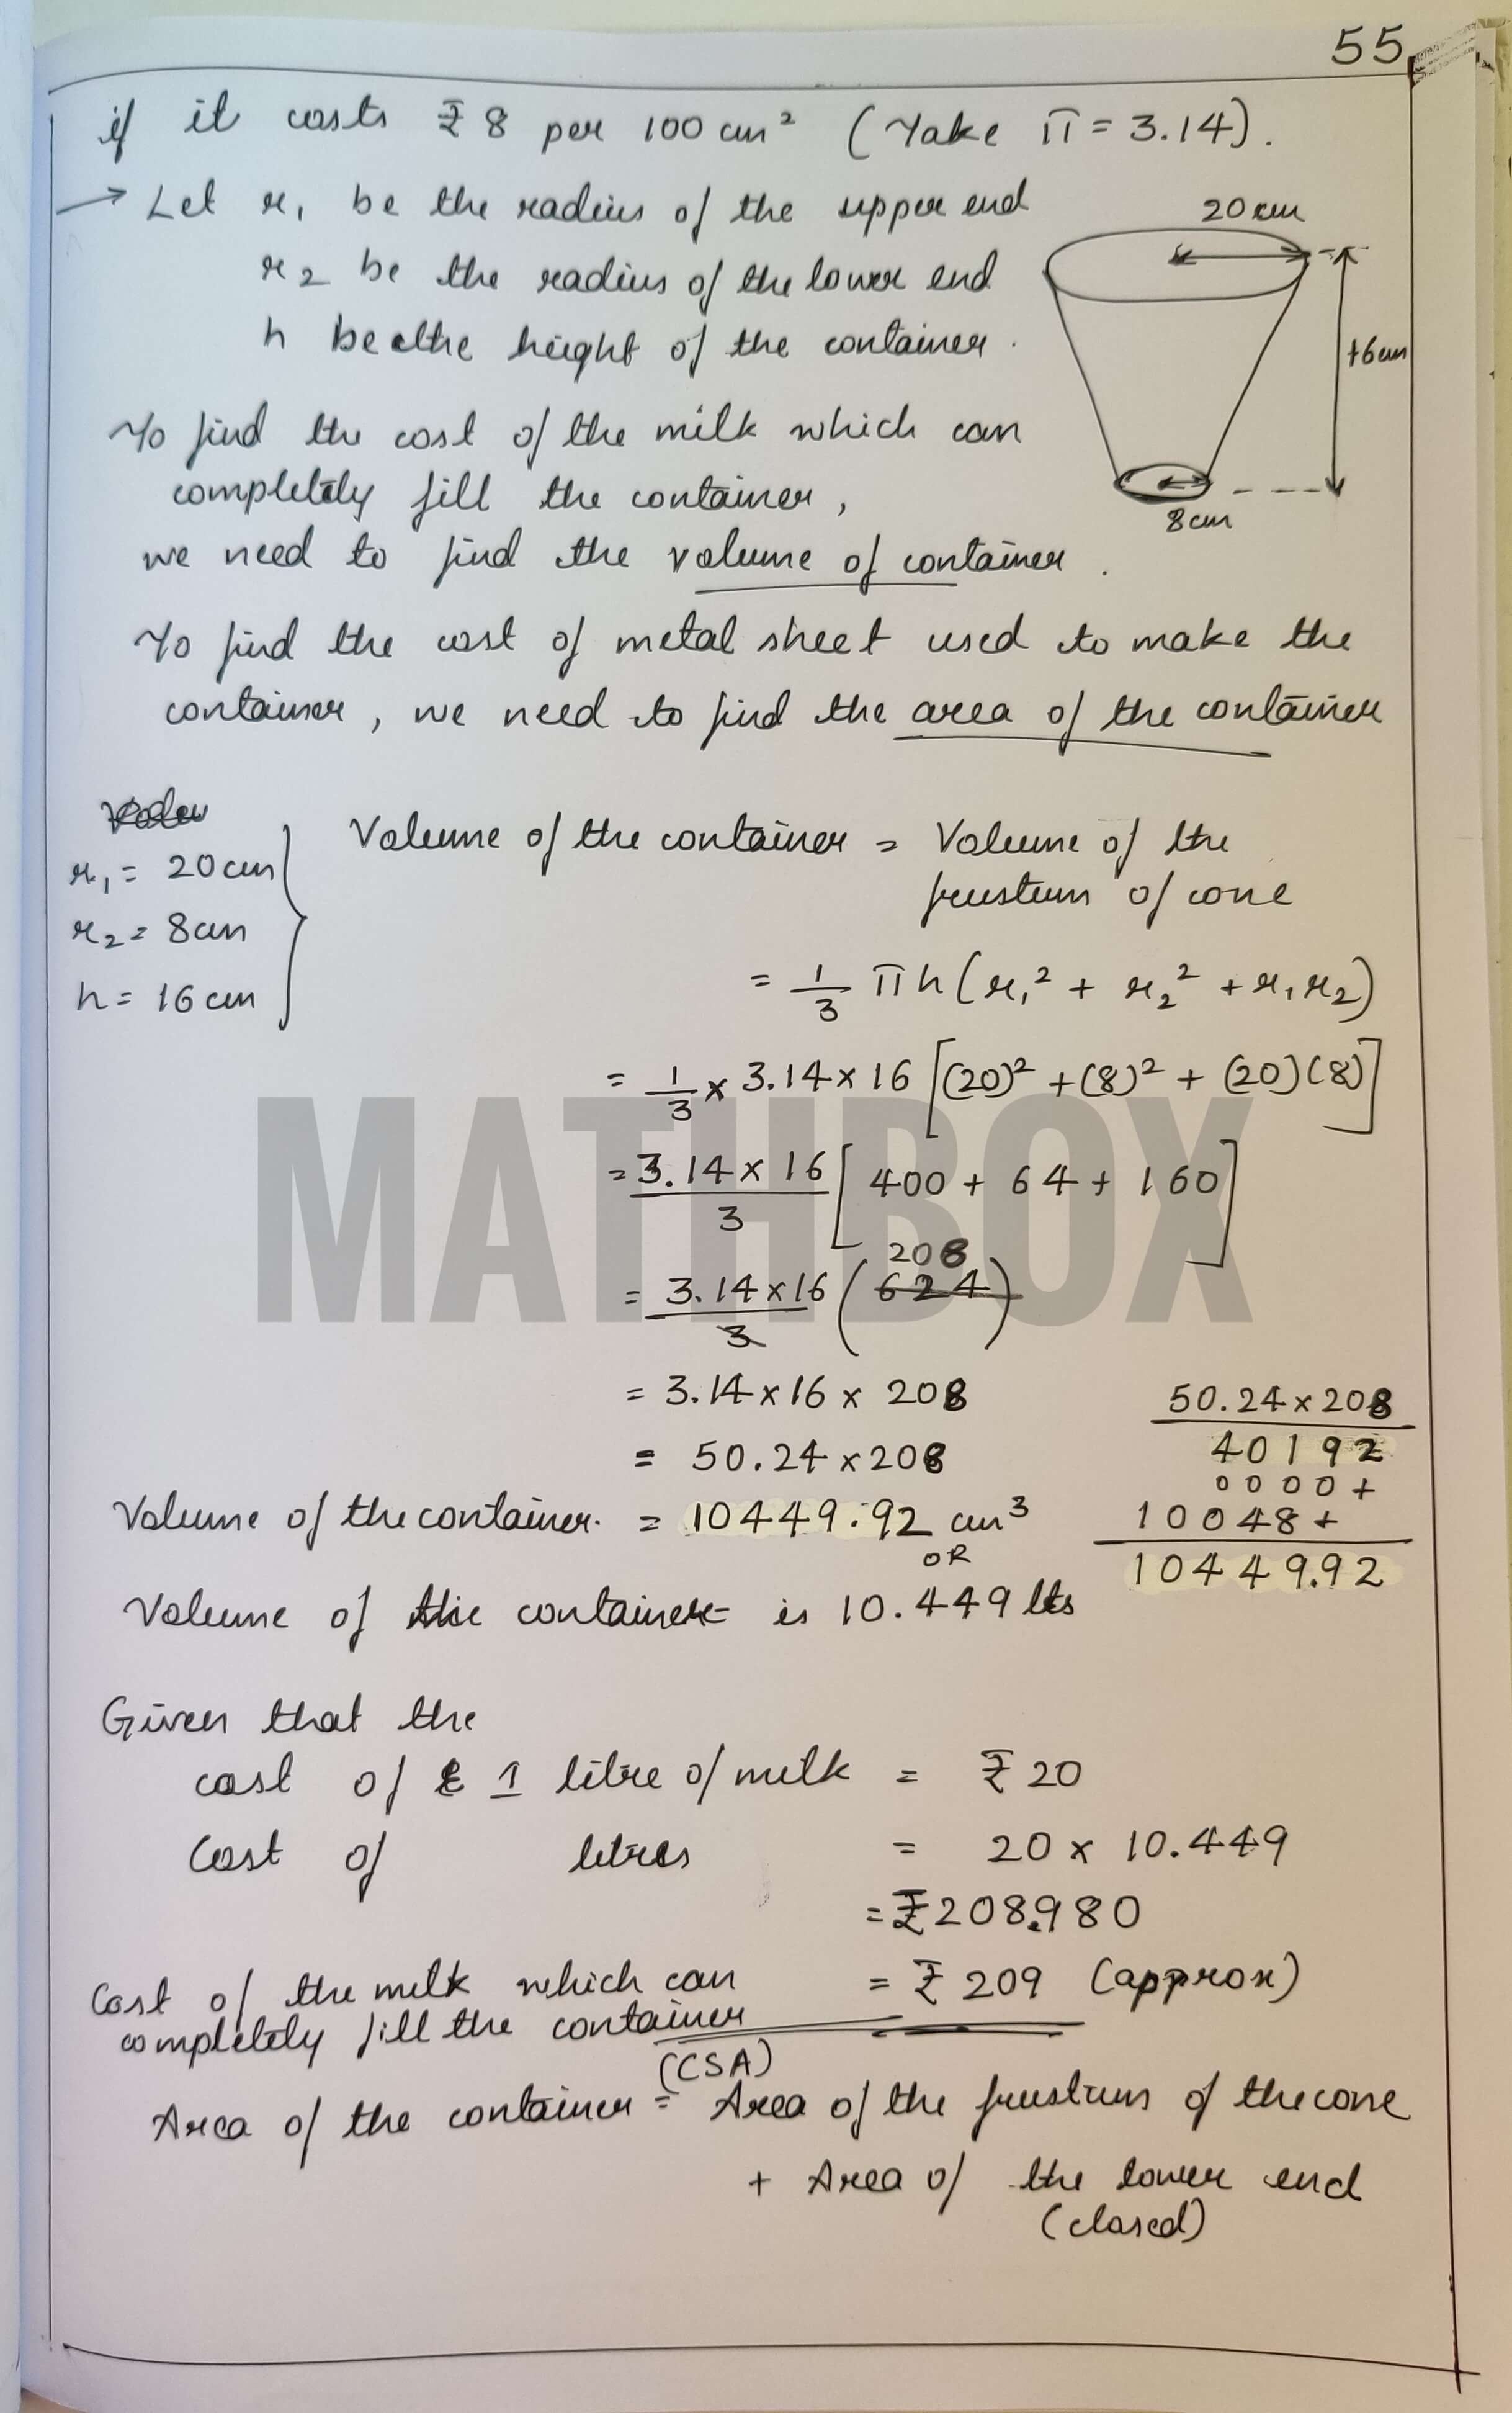 55
if it costs ₹ 8 per 100 cm² (Take π = 3.14).
→ Let r₁ be the radius of the upper end
r₂ be the radius of the lower end
h be the height of the container.
20 cm
16 cm
8 cm
To find the cost of the milk which can
completely fill the container,
we need to find the volume of container.
To find the cost of metal sheet used to make the
container, we need to find the area of the container
r₁ = 20 cm
r₂ = 8 cm
h = 16 cm
Volume of the container = Volume of the
frustum of cone
= 1/3 πh (r₁² + r₂² + r₁r₂)
= 1/3 × 3.14 × 16 [(20)² + (8)² + (20)(8)]
= 3.14 × 16 / 3 [400 + 64 + 160]
208
= 3.14 × 16 / 3 (624)
= 3.14 × 16 × 208
= 50.24 × 208
50.24 × 208
40192
0000+
10048+
10449.92
Volume of the container. = 10449.92 cm³
OR
Volume of the container = is 10.449 lts
Given that the
cost of 1 litre of milk = ₹ 20
Cost of litres = 20 × 10.449
= ₹ 208.980
Cost of the milk which can = ₹ 209 (approx)
completely fill the container
(CSA)
Area of the container = Area of the frustum of the cone
+ Area of the lower end
(closed)
MATHBOX